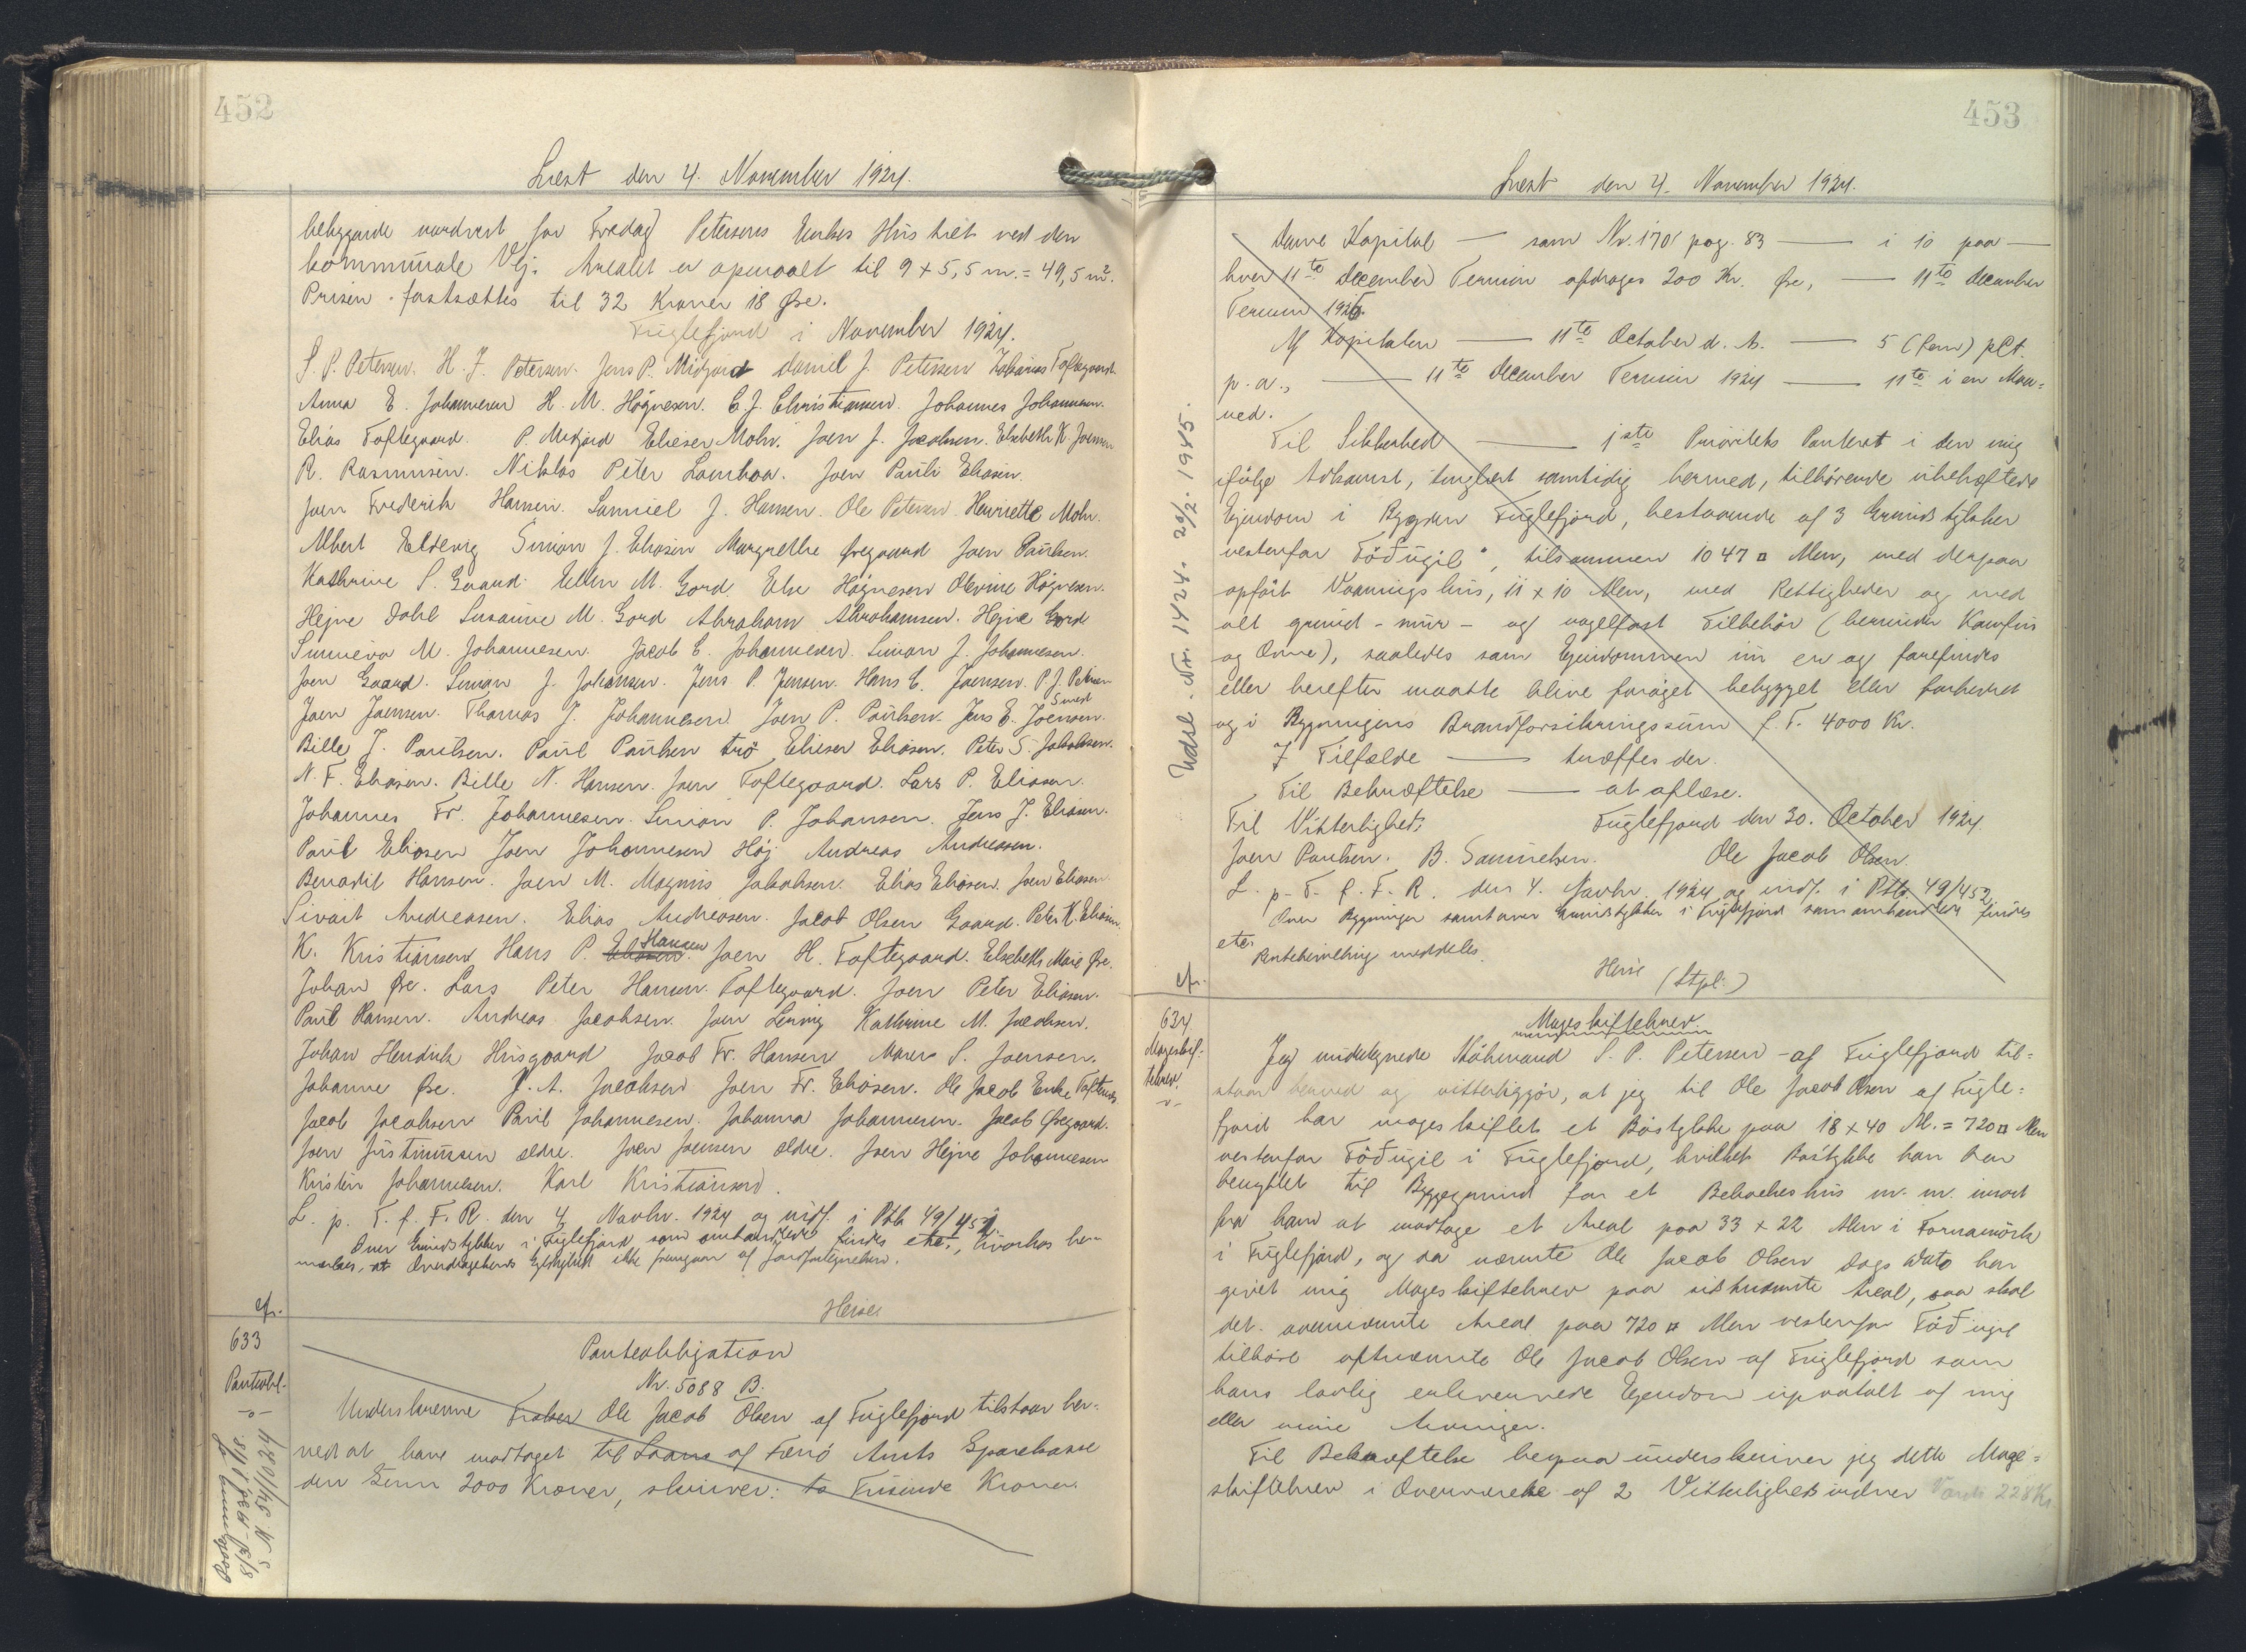 452
Læst den 4. November 1924.
bebyggende nordvest for Fredag Petersens Enkes Hus tæt ved den
kommunale Vej. Arealet er opmaalt til 9 x 5,5 m. = 49,5 m².
Prisen fastsættes til 32 Kroner 18 Øre.
Fuglefjord i November 1924.
S. P. Petersen. H. J. Petersen. Jens P. Midjord Daniel J. Petersen Zakarias Toftegaard.
Anna E. Johannesen H. M. Høgnesen. C. J. Christiansen. Johannes Johannesen.
Elias Toftegaard. P. Midjord Elieser Mohr. Joen J. Jacobsen. Elsebeth K. Joensen
R. Rasmussen. Niklas Peter Lamhaa. Joen Pauli Eliasen.
Joen Frederik Hansen. Samuel J. Hansen. Ole Petersen. Henriette Mohr.
Albert Eldevig Simon J. Eliasen Margrethe Øregaard Joen Paulsen.
Kathrine S. Gaard. Ellen M. Gord Else Høgnesen Olevine Høgnesen.
Hejne Dahl Susanne M. Gord Abraham Abrahamsen. Hejne Gord
Sunneva M. Johannesen. Jacob E. Johannesen. Simon J. Johannesen.
Joen Gaard. Simon J. Johansen. Jens P. Jensen. Hans E. Joensen. P. J. Petersen
Smed
Joen Joensen. Thomas J. Johannesen. Joen P. Paulsen. Jens E. Joensen.
Bille J. Paulsen. Paul Paulsen trö Elieser Eliasen. Peter S. Jakobsen.
N. F. Eliasen. Bille N. Hansen. Joen Toftegaard. Lars P. Eliasen.
Johannes Fr. Johannesen. Simon P. Johansen. Jens J. Eliasen.
Paul Eliasen Joen Johannesen Høj Andreas Andreasen.
Benadit Hansen. Joen M. Magnus Jakobsen. Elias Eliasen. Joen Eliasen
Sivait Andreasen. Elias Andreasen. Jacob Olsen Gaard. Peter K. Eliasen.
Hansen
K. Kristiansen Hans P. Eliasen. Joen H. Toftegaard. Elsebeth Marie Øre.
Johan Øre. Lars Peter Hansen. Toftegaard. Joen Peter Eliasen.
Paul Hansen. Andreas Jacobsen. Joen Lervig Kathrine M. Jacobsen.
Johan Hendrik Husgaard Jacob Fr. Hansen Maren S. Joensen.
Johanne Øre. J. A. Jacobsen Joen Fr. Eliasen. Ole Jacob Enke Toftends
Jacob Jacobsen Paul Johannesen. Johanna Johannesen. Jacob Øregaard.
Joen Justinussen ældre. Joen Joensen ældre. Joen Hejne Johannesen
Kristin Johannesen. Karl Kristiansen.
L. p. T. f. F. R. den 4. Novbr. 1924 og indf. i Ptb. 49/451.
Over Grundstykker i Fuglefjord som omhandlede findes etc., hvorhos be-
mærkes, at Overdragelsens Gyldighed ikke fremgaar af Jordfortegnelsen.
cfr.
Heise.
633
Panteobl.
-o-
Panteobligation
Nr. 5088 B.
Underskrevne Træsker Ole Jacob Olsen af Fuglefjord tilstaar her-
ved at have modtaget til Laans af Færø Amts Sparekasse
den Sum 2000 Kroner, skriver: to Tusinde Kroner.
453
Læst den 4. November 1924.
denne Kapital — som Nr. 170 pag. 83 — i 10 paa —
hver 11te December Termin afdrages 200 Kr. Øre, — 11te December
Termin 1925.
Af Kapitalen — 11te October d. A. — 5 (fem) pCt.
p. a., — 11te December Termin 1924 — 11te i en Maa-
ned.
Til Sikkerhed — 1ste Prioritets Panteret i den mig
ifølge Adkomst, tinglæst samtidig hermed, tilhørende ubehæftede
Ejendom i Bygden Fuglefjord, bestaaende af 3 Grundstykker
vestenfor "Töðugil", tilsammen 1047 □ Alen, med derpaa
opført Vaaningshus, 11 x 10 Alen, med Rettigheder og med
alt grund- mur- og nagelfast Tilbehör (herunder Komfur
og Ovne), saaledes som Ejendommen nu er og forefindes
eller herefter maatte blive forøget bebygget eller forbedret
og i Bygningens Brandforsikringssum f. T. 4000 Kr.
I Tilfælde — træffes der.
Til Bekræftelse — at aflæse.
Til Vitterlighed: Fuglefjord den 30. October 1924.
Joen Paulsen. B. Samuelsen. Ole Jacob Olsen.
L. p. T. f. F. R. den 4. Novbr. 1924 og indf. i Ptb. 49/452
Over Bygninger samt over Grundstykker i Fuglefjord som omhandlede findes
etc.
Rentehenvisning meddeles.
Heise
(Stpl.)
Udsl. Nr. 1424. 20/2. 1945.
cfr.
634
Mageskif-
tebrev.
-o-
Mageskiftebrev
Jeg undertegnede Købmand S. P. Petersen af Fuglefjord til-
staar herved og vitterliggjör, at jeg til Ole Jacob Olsen af Fugle-
fjord har mageskiftet et Böstykke paa 18 x 40 Al. = 720 □ Alen
vestenfor Töðugil i Fuglefjord, hvilket Bøstykke han har
benyttet til Byggegrund for et Beboelseshus m. m. imod
fra ham at modtage et Areal paa 33 x 22 Alen i Fornamörk
i Fuglefjord, og da nævnte Ole Jacob Olsen Dags Dato har
givet mig Mageskiftebrev paa sidstnævnte Areal, saa skal
det ovennævnte Areal paa 720 □ Alen vestenfor Töðugil
tilhøre oftnævnte Ole Jacob Olsen af Fuglefjord som
hans lovlig erhvervede Ejendom upaatalt af mig
eller mine Arvinger.
Til Bekræftelse herpaa underskriver jeg dette Mage-
skiftebrev i Overværelse af 2 Vitterlighedsvidner Værdi 228 Kr.